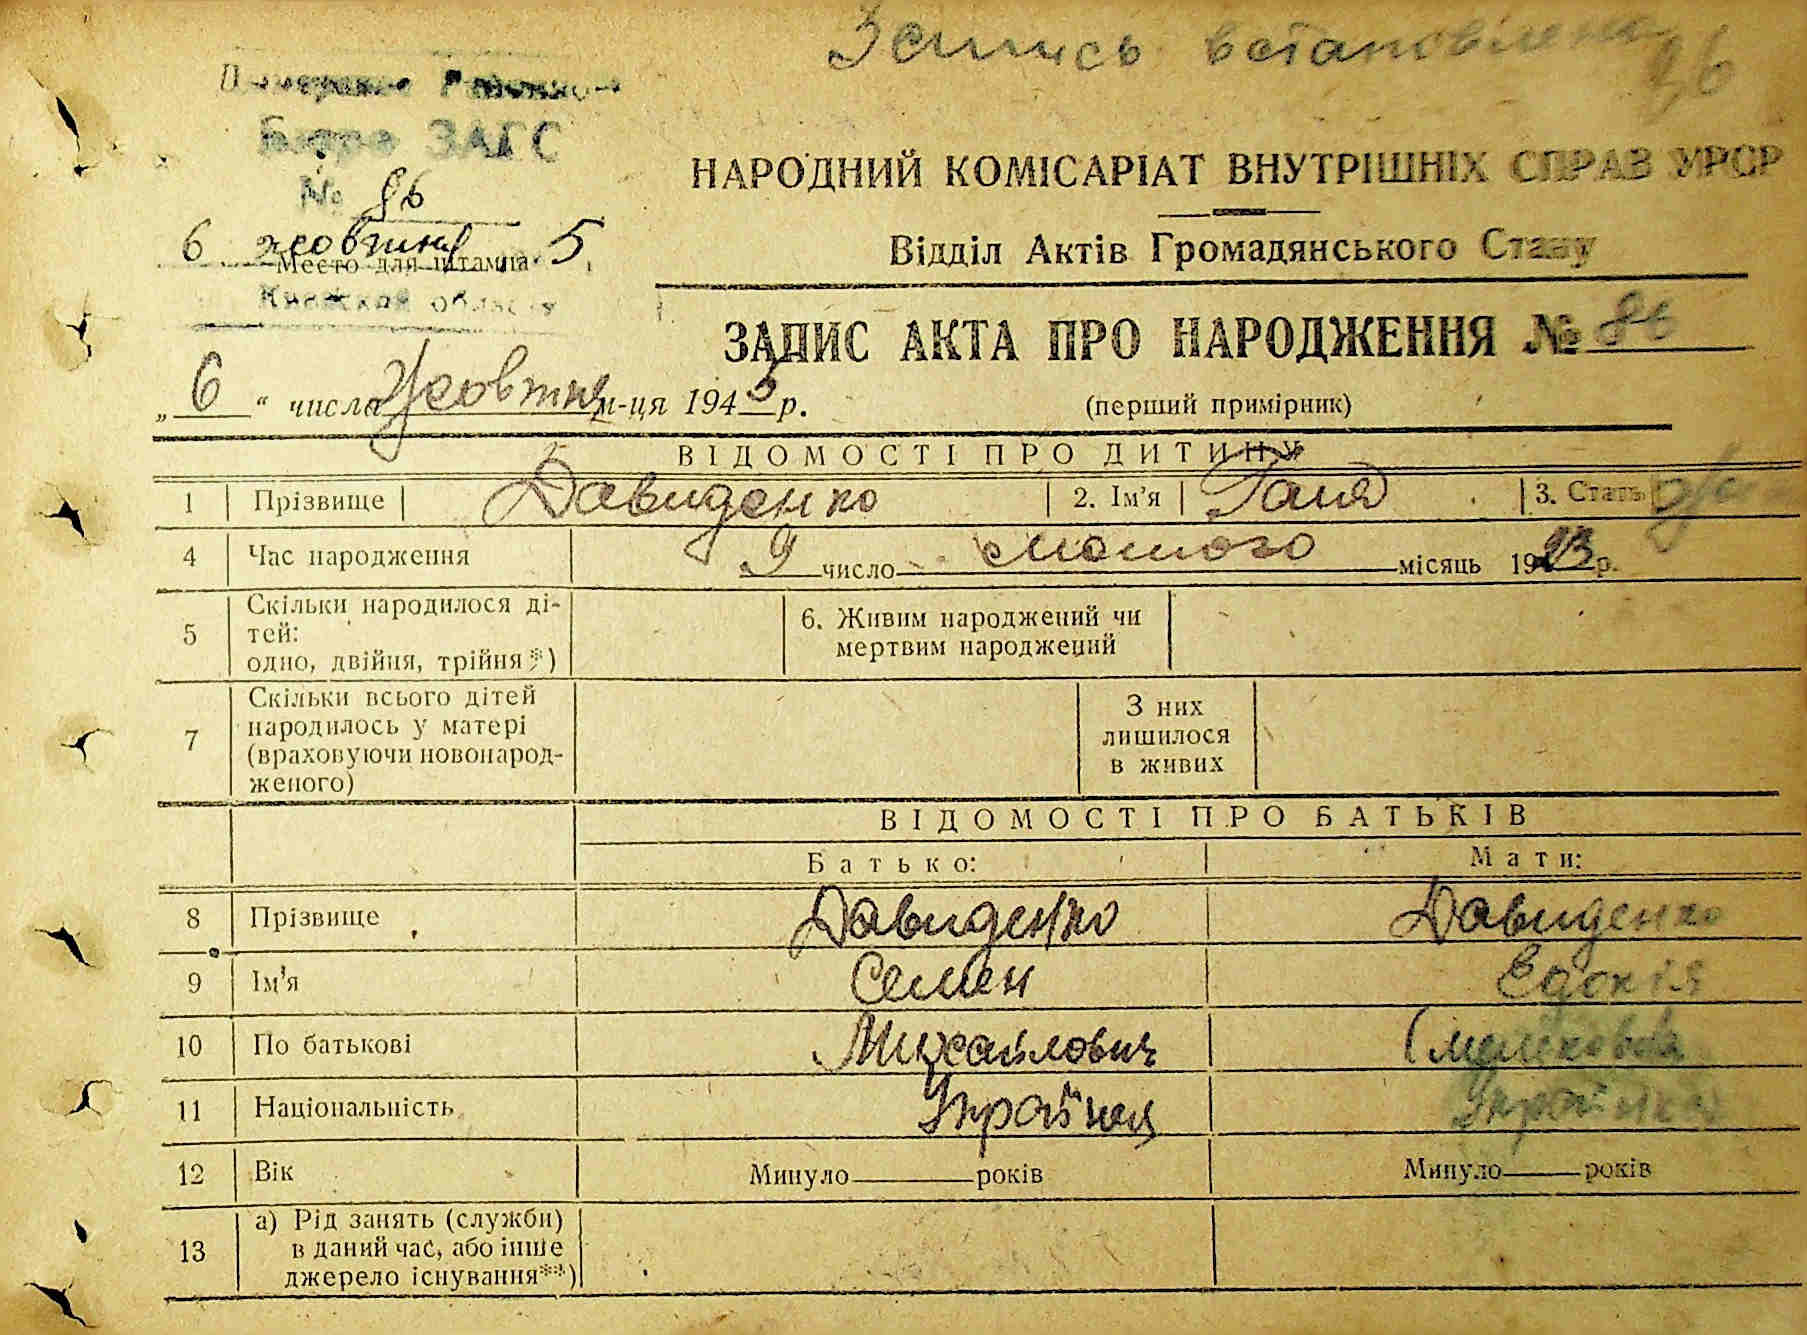 Запись встановлена
86
Районное
Бюро ЗАГС
№ 86
НАРОДНИЙ КОМІСАРІАТ ВНУТРІШНІХ СПРАВ УРСР
6 жовтня 5
Место для штампа
Киевской области
Відділ Актів Громадянського Стану
ЗАПИС АКТА ПРО НАРОДЖЕННЯ № 86
„6“ числа Жовтня м-ця 1945 р.
(перший примірник)
ВІДОМОСТІ ПРО ДИТИНУ
1 Прізвище Давиденко 2. Ім'я Галя 3. Стать
4 Час народження 9 число лютого місяць 1923 р.
5 Скільки народилося ді-
тей:
одно, двійня, трійня*)
6. Живим народжений чи
мертвим народжений
7 Скільки всього дітей
народилось у матері
(враховуючи новонарод-
женого)
З них
лишилося
в живих
ВІДОМОСТІ ПРО БАТЬКІВ
Батько: Мати:
8 Прізвище Давиденко Давиденко
9 Ім'я Семен Євдокія
10 По батькові Михайлович
11 Національність Українець Українка
12 Вік Минуло років Минуло років
13 а) Рід занять (служби)
в даний час, або інше
джерело існування**)